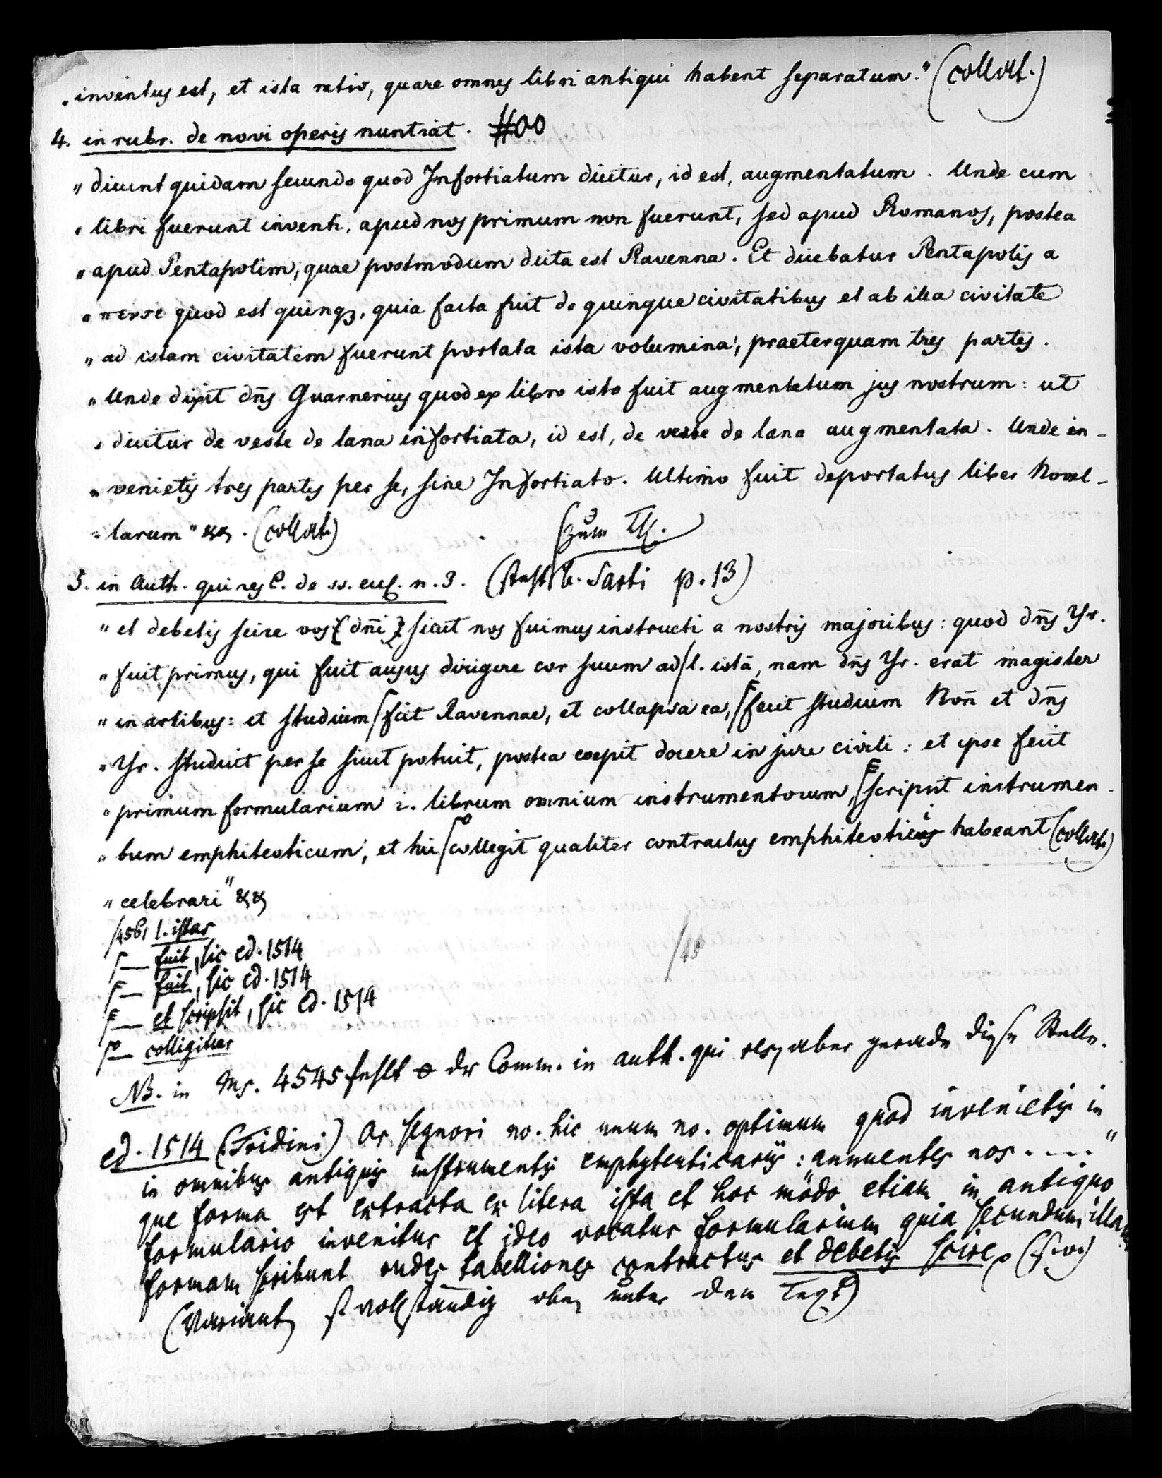 „ inventus est, et ista ratio, quare omnes libri antiqui habent separatum." (collat.)
4. in rubr. de novi operis nuntiat. #00
„ dicunt quidam secundo quod Infortiatum dicitur, id est, augmentatum. Unde cum
„ libri fuerunt inventi, apud nos primum non fuerunt, sed apud Romanos, postea
„ apud Pentapolim, quae postmodum dicta est Ravenna. Et dicebatur Pentapolis a
„ πεντε quod est quinqȝ, quia facta fuit de quinque civitatibus et ab illa civitate
„ ad istam civitatem fuerunt portata ista volumina, praeterquam tres partes.
„ Unde dixit dn̄s Guarnerius quod ex libro isto fuit augmentatum jus nostrum: ut
„ dicitur de veste de lana infortiata, id est, de veste de lana augmentata. Unde in-
„ venietis tres partes per se, sine Infortiato. Ultimo fuit deportatus liber Novel-
„ larum" &c. (collat.)
(zum
5. in Auth. qui res E. de ss. eccl. n. 9. (b. Sarti p. 13)
„ et debetis scire vos [dn̄i] sicut nos fuimus instructi a nostris majoribus: quod dn̄s Yr.
„ fuit primus, qui fuit ausus dirigere cor suum ad l. istā, nam dn̄s Yr. erat magister
„ in artibus: et studium fuit Ravennae, et collapsa ea, fuit studium Bon̄ et dn̄s
„ Yr. studuit per se sicut potuit, postea coepit docere in jure civili: et ipse fecit
„ primum formularium i. librum omnium instrumentorum, scripsit instrumen-
„ tum emphiteoticum, et hic collegit qualiter contractus emphiteoticus habeant (collat.)
„ celebrari" &c
l. istas
fuit, sic ed. 1514
fuit, sic ed. 1514
et scripsit, sic ed. 1514
colligitur
/45
NB. in Ms. 4545 fehlt der Comm. in auth. qui res, aber gerade diese Stelle.
ed. 1514 (Tridini) Or segnori no. hic unum no. optimum quod invenietis in
in omnibus antiquis instrumentis emphyteuticariis: annuentes nos ...."
que forma est extracta ex litera ista et hoc modo etiam in antiquo
formulario invenitur et ideo vocatur formularium quia secundum illam
formam scribunt rudes tabelliones contractus et debetis scire
(Varianten vollständig oben unter dem Text)